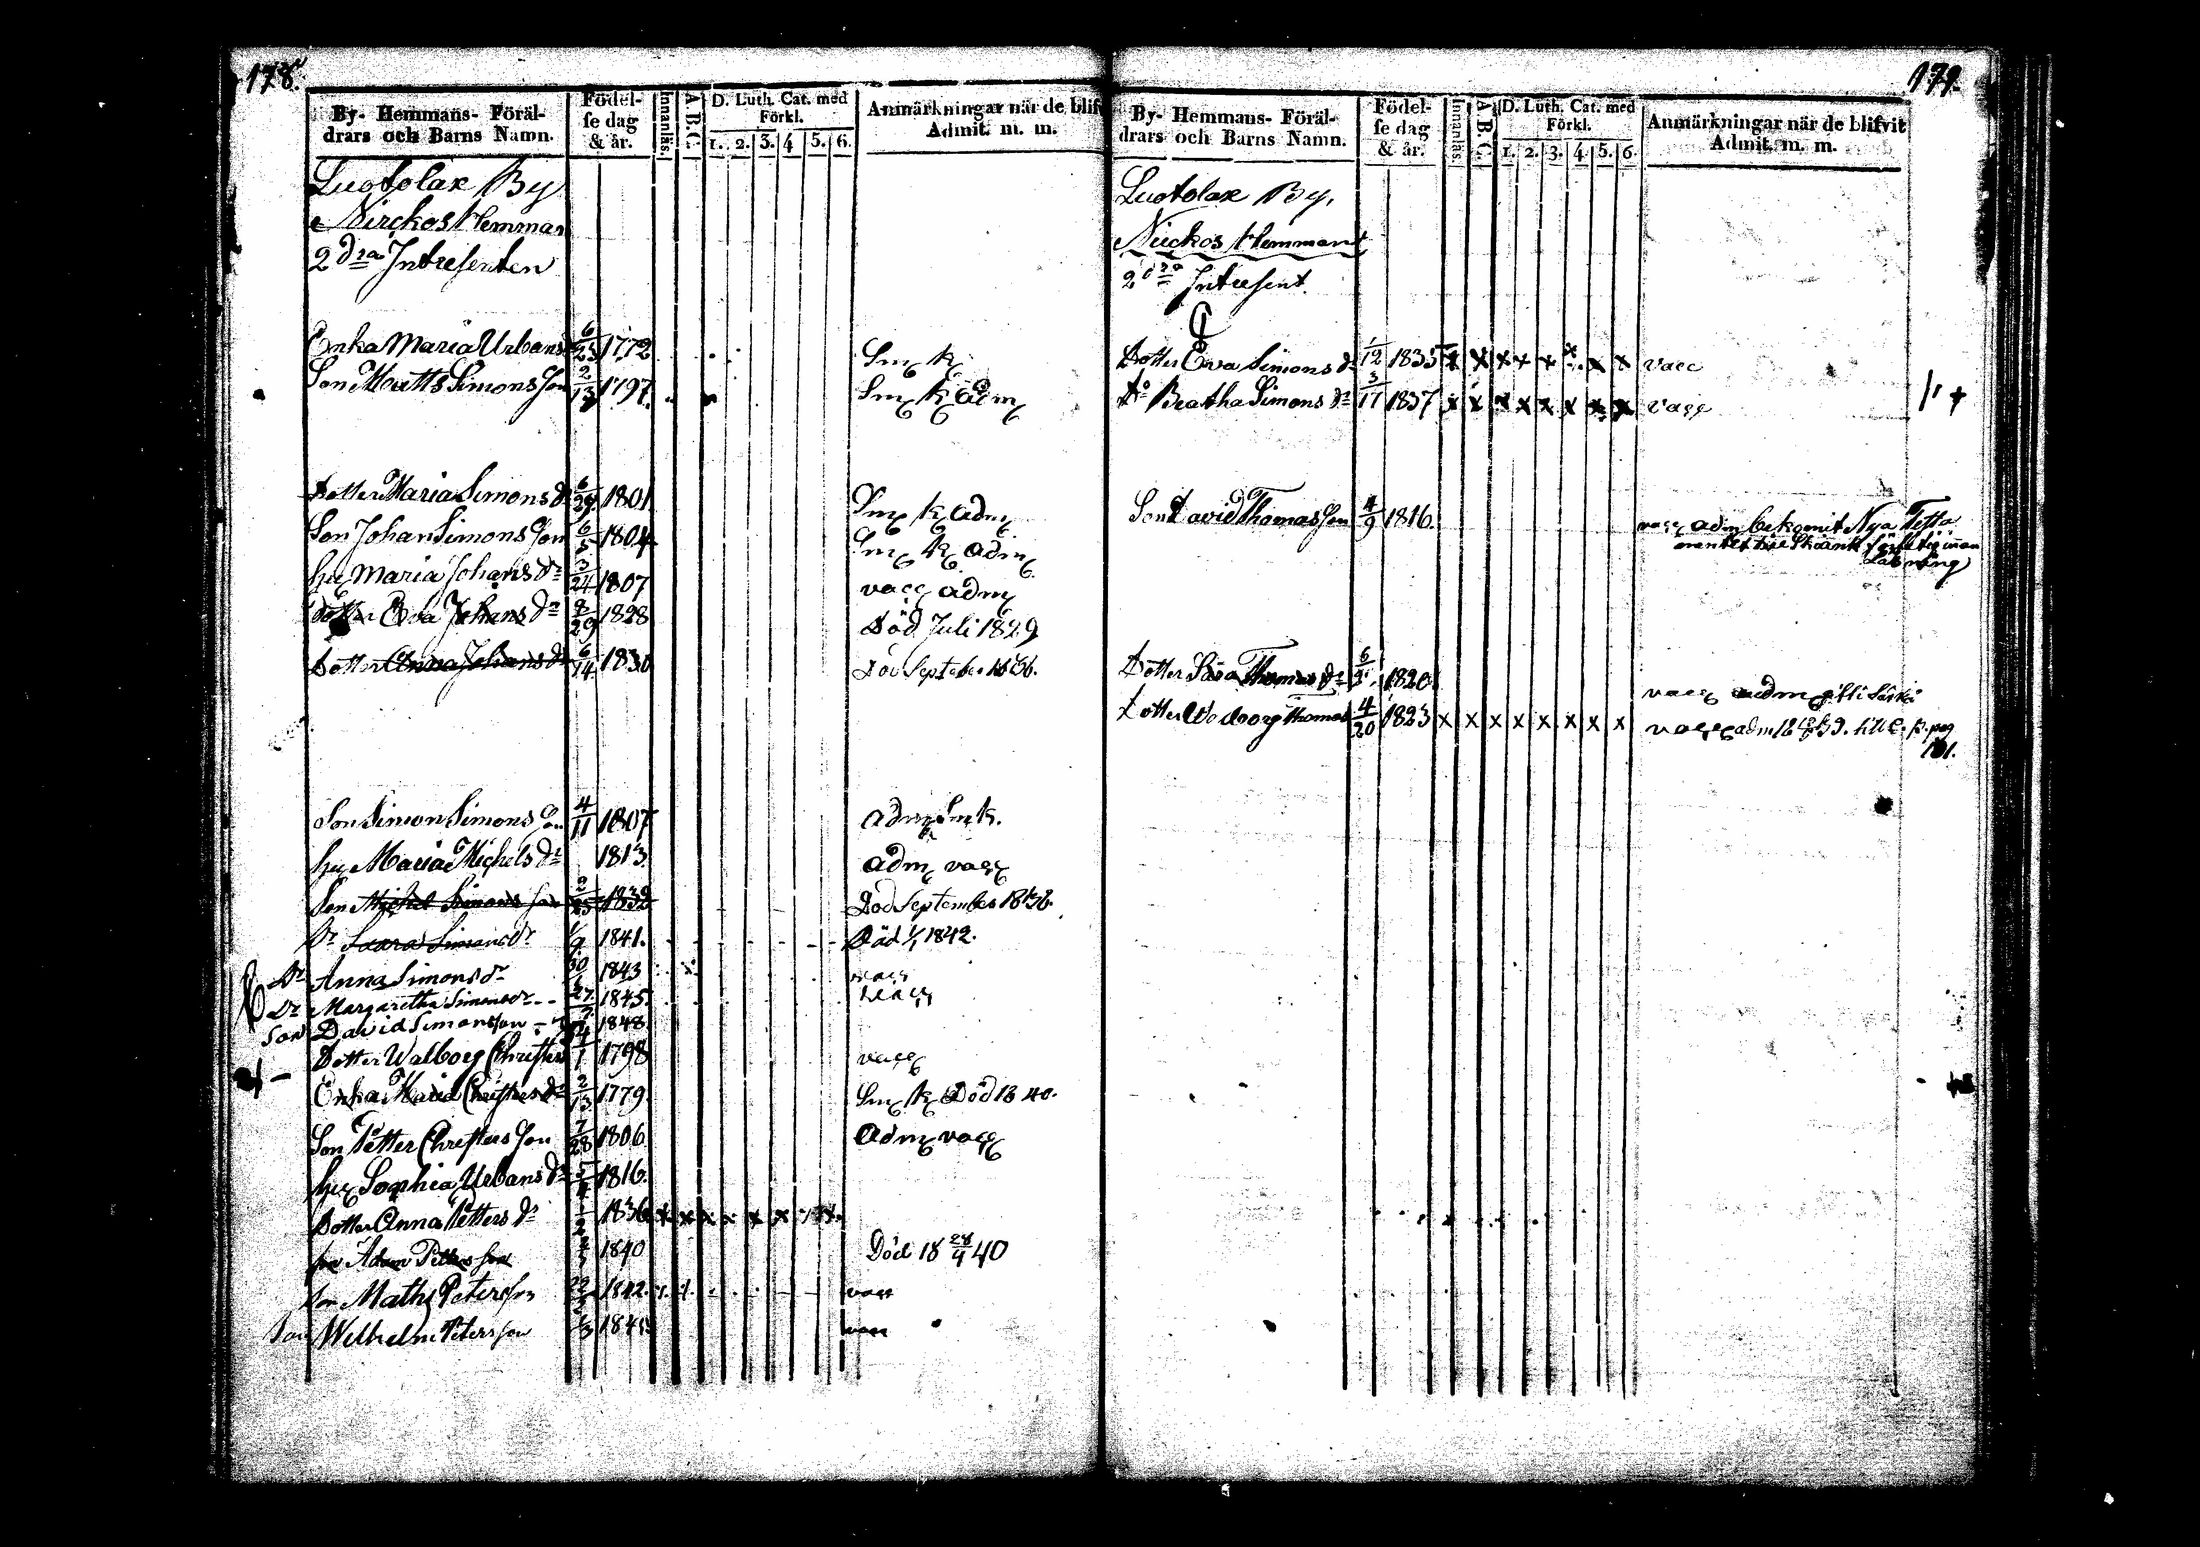 178.
By- Hemmans- Föräl-
drars och Barns Namn.
Födel-
se dag
& år.
Innanläs.
A.B.C.
D. Luth. Cat. med
Förkl.
1. 2. 3. 4 5. 6.
Anmärkningar när de blifv
Admit. m. m.
Luotolax By
Nirckos Hemman
2dra Intresenten
Enka Maria Urbans 6/25 1772 Sm k
Son Matts Simons Son 2/13 1797. Sm k adm
Dotter Maria Simons dr 6/29 1801 Sm k adm
Son Johan Simons Son 6/5 1804 Sm k adm
Hu Maria Johans dr 3/24 1807 vacc adm
dotter Eva Johans dr 8/29 1828 Död Juli 1829
Dotter Anna Johans dr 6/14 1830 Död September 1836.
Son Simon Simons Son 4/11 1807 adm Sm k.
Hu Maria Michels dr 1813 adm vacc
Son Michel Simons son 2/25 1832 Död September 1836.
Dr Saara Simons dr 1/9 1841. Död 1/1 1842.
Dr Anna Simons dr 30/ 1843 vacc
Dr Margaretha Simons dr 27/ 1845. vacc
Son David Simonsson 1848.
Dotter Walborg Christers /1 1798 vacc
Enka Maria Christers dr 2/13 1779. Sm k Död 1840.
Son Petter Christers Son 7/28 1806 adm vacc
Hu Sophia Urbans dr 5/ 1816.
Dotter Anna Petters dr 1/2 1836 x x x x x x
son Adam Petters son 1840 Död 18 28/4 40
Son Maths Petersson 1842. vacc
Son Wilhelm Petersson 6/3 184 vacc
179.
By- Hemmans- Föräl-
drars och Barns Namn.
Födel-
se dag
& år.
Innanläs.
A.B.C.
D. Luth. Cat. med
Förkl.
1. 2. 3. 4. 5. 6.
Anmärkningar när de blifvit
Admit. m. m.
Luotolax By.
Nirckos Hemman
2dra Intresent.
Dotter Eva Simons dr 1/12 1835 x x x x x x x x vacc
Do Beatha Simons dr 3/17 1837 x x x x x x x x vacc
Son David Thomas Son 4/9 1816. vacc adm bekomit Nya Testa
mentet til Skänk för flitig innan
Läsning
Dotter Sara Thomas dr 6/ 1820 vacc adm gift
Dotter Walborg Thomas 4/20 1823 x x x x x x x x vacc adm 18 39. p. pag
181.